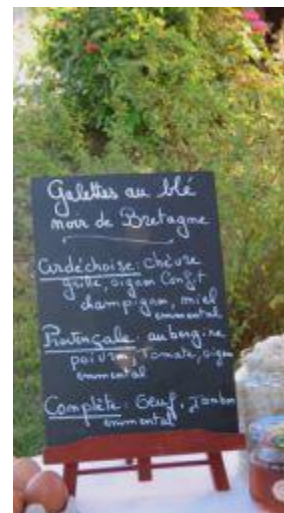 Galettes au blé
noir de Bretagne
Ardéchoise: chèvre
grillé, oignon confit
champignon, miel
emmental
Provençale: aubergine
poivron, tomate, oignon
emmental
Complète: Oeuf, Jambon
emmental